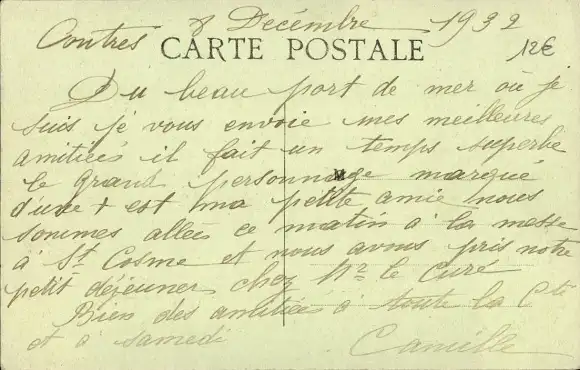 Contres 8 Décembre 1932
CARTE POSTALE
12€
Du beau port de mer où je
suis je vous envoie mes meilleures
amitiées il fait un temps superbe
le grand personnage marqué
d'une + est ma petite amie nous
sommes allées ce matin à la messe
à St Cosme et nous avons pris notre
petit déjeuner chez Mr le Curé
Bien des amitiées à toute la Cté
et à samedi
Camille